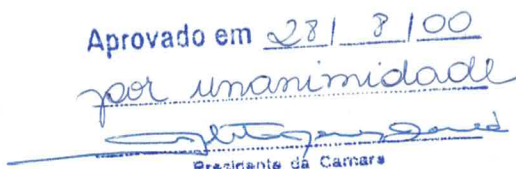 Aprovado em 28/8/00
por unanimidade
Presidente da Camara